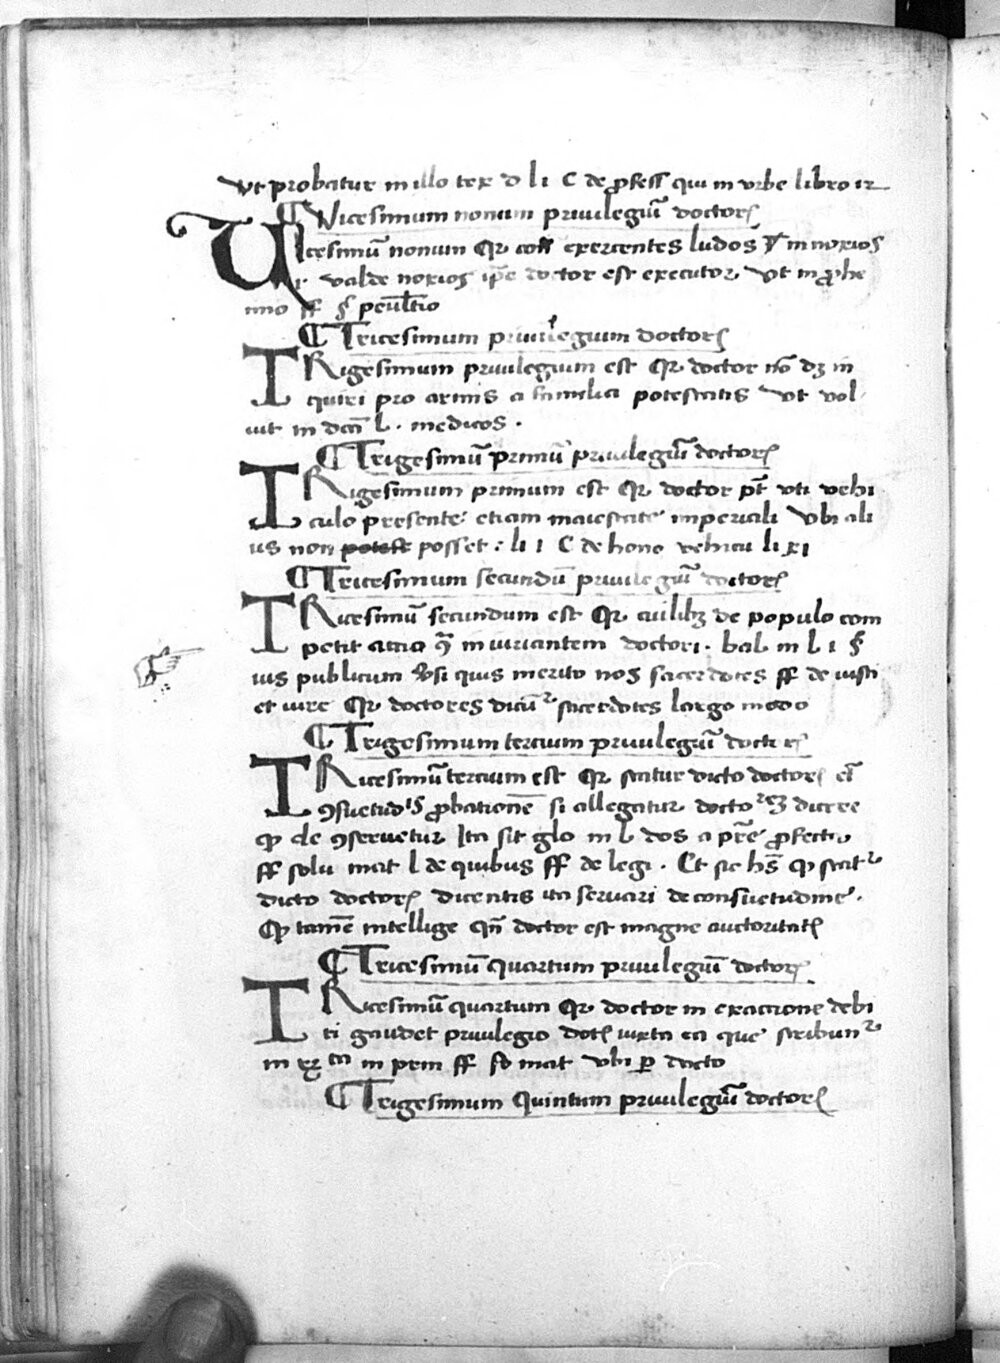 vt probatur in illo tex d l i C de ꝓfess qui in vrbe libro 12
¶ Vicesimum nonum priuilegiū doctorꝭ
VIcesimū nonum qꝛ exercentes ludos in noxios
valde noxios ip̄e doctor est executor vt in ꝓhe
mio ff § penul̄tio
¶ Tricesimum priuilegium doctorꝭ
TRigesimum priuilegium est qꝛ doctor nō dꝫ in
quiri pro armis a familia potestatis vt vol
uit in l . medicos .
¶ Trigesimū primū priuilegiū doctorꝭ
TRigesimum primum est qꝛ doctor pt̄ vti vehi
culo presente etiam maiestate imperiali vbi ali
us non posset : li i C de hono vehicu li xi
¶ Tricesimum secundū priuilegiū doctorꝭ
TRicesimū secundum est qꝛ cuilibꝫ de populo com
petit actio in iuriantem doctori . bal in l i §
ius publicum si quis merito nos sacerdotes ff de iusti
et iure qꝛ doctores dicūtur sacerdotes largo modo
¶ Trigesimum tercium priuilegiū doctorꝭ
TRicesimū tercium est qꝛ statur dicto doctorꝭ
ꝯsuetudīs ꝓbationē si allegatur dicere
ꝙ de ꝯseruetur Ita sit glo in l dos a pr̄e ꝓfecta
ff solu mat l de quibus ff de legi . Et sic hēs ꝙ statur
dicto doctorꝭ dicentis ita seruari de consuetudine .
ꝙ tamē intellige qn̄ doctor est magne auctoritatꝭ
¶ Tricesimū quartum priuilegiū doctorꝭ
TRicesimū quartum qꝛ doctor in exactione debi
ti gaudet priuilegio dotꝭ iuxta ea que scribuntur
in prin ff so mat vbi ꝑ docto
¶ Trigesimum Quintum priuilegiū doctorꝭ